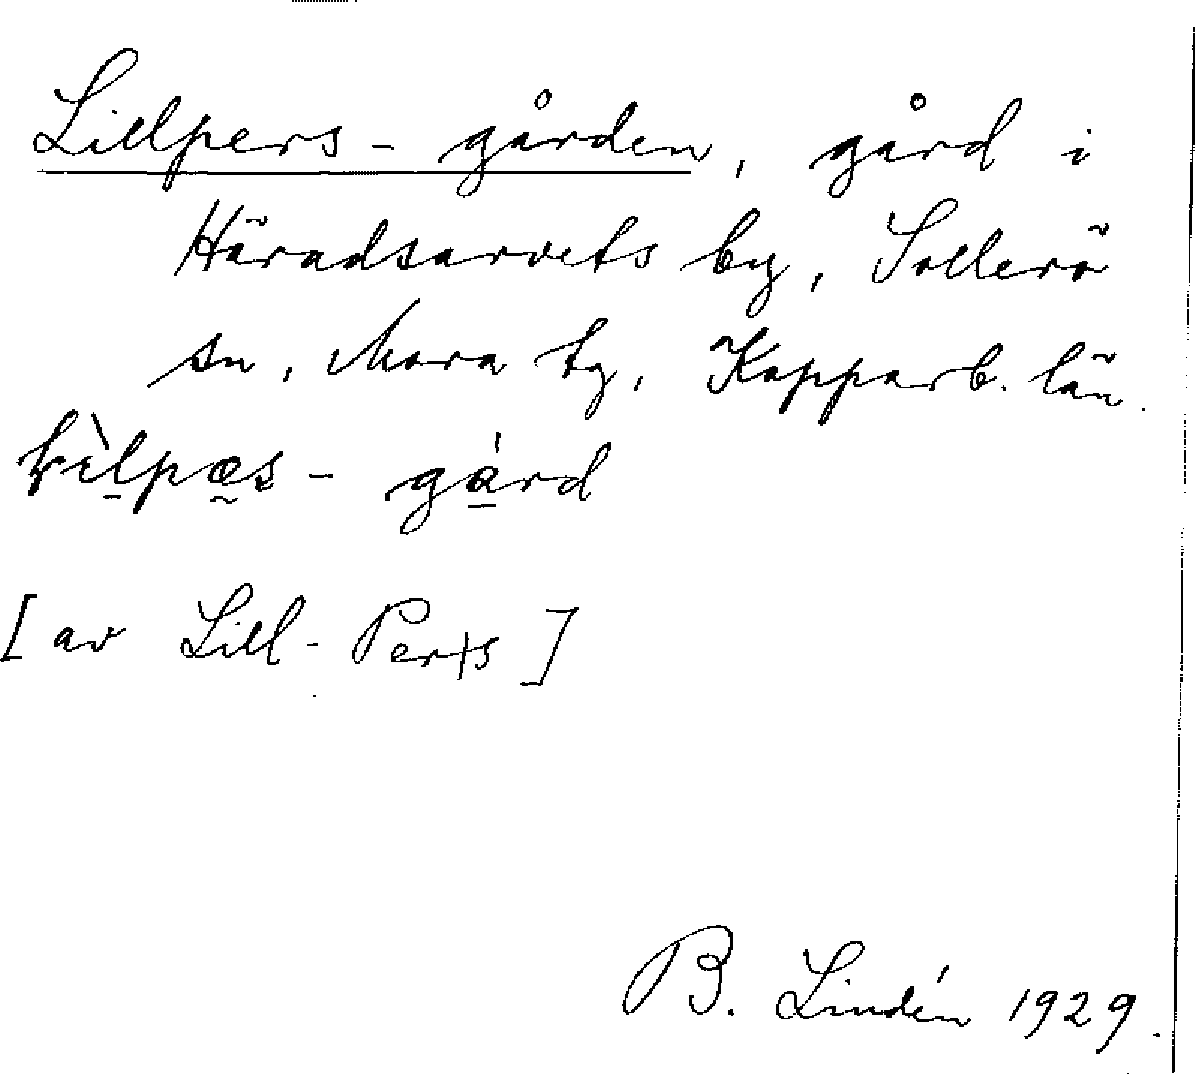 Lillpers-gården, gård i
Häradsarvets by, Sollerö
sn, Mora tg, Kopparb. län.
[av Lill-Pers]
B. Lindén 1929.